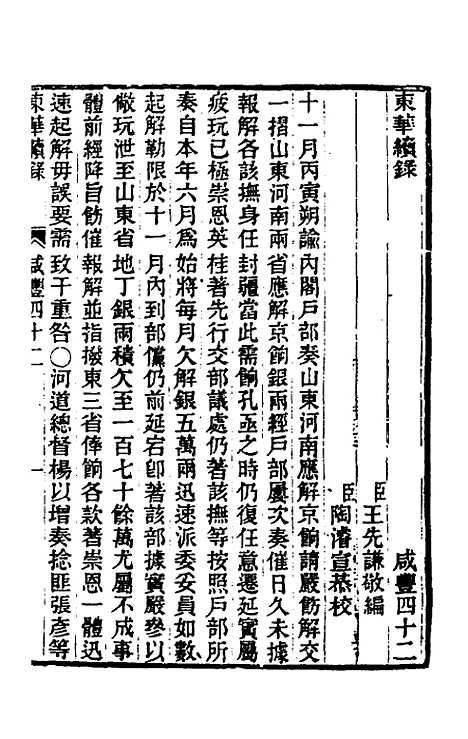 東華續錄
咸豐四十二
臣王先謙敬編
臣陶濬宣恭校
十一月丙寅朔諭內閣戶部奏山東河南應解京餉請嚴飭解交
一摺山東河南兩省應解京餉銀兩經戶部屢次奏催日久未據
報解各該撫身任封疆當此需餉孔亟之時仍復任意遷延實屬
疲玩已極崇恩英桂著先行交部議處仍著該撫等按照戶部所
奏自本年六月為始將每月欠解銀五萬兩迅速派委妥員如數
起解勒限於十一月內到部儻仍前延宕卽著該部據實嚴參以
儆玩泄至山東省地丁銀兩積欠至一百七十餘萬尤屬不成事
體前經降旨飭催報解並指撥東三省俸餉各款著崇恩一體迅
速起解毋誤要需致干重咎○河道總督楊以增奏捻匪張彥等
東華續錄
咸豐四十二
一